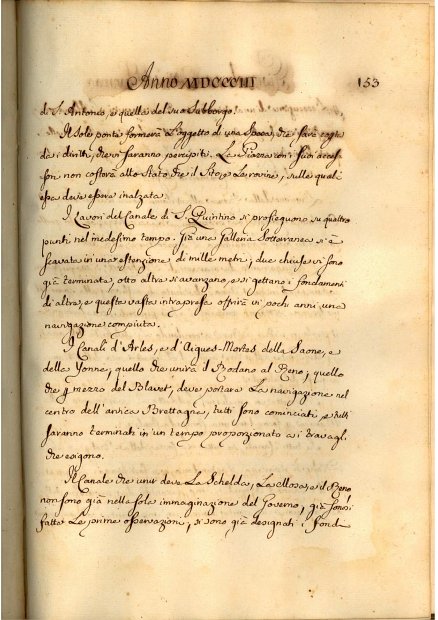 Anno MDCCCIII
153
di S. Antonio, e quella del suo Subborgo.
Il solo ponte formerà l'oggetto di una Spesa, che sarà coperta
da i diritti, che vi saranno percepiti. La Piazza con i suoi acces-
sori non costerà allo Stato che il Sito, e le rovine, sulle quali
essa deve essere inalzata.
I Lavori del Canale di S. Quintino si prosieguono su quattro
punti nel medesimo tempo. Già una Galleria Sotterranea si è
scavata in una estenzione di mille metri; due chiuse vi sono
già terminate, otto altre si avanzano, e si gettano i fondamenti
di altre, e questa vasta intrapresa offrirà in pochi anni una
navigazione compiuta.
I Canali d'Arles, e d'Aigues-Mortes della Saone, e
della Yonne, quello che unirà il Rodano al Reno; quello
che p mezzo del Blavet, deve portare la navigazione nel
centro dell'antica Brettagna, tutti sono cominciati, e tutti
saranno terminati in un tempo proporzionato a i travagli
che esigono.
Il Canale che unir deve la Schelda, la Mosa, e il Reno
non sono già nella sola immaginazione del Governo, già sonosi
fatte le prime osservazioni, si sono già designati i fondi